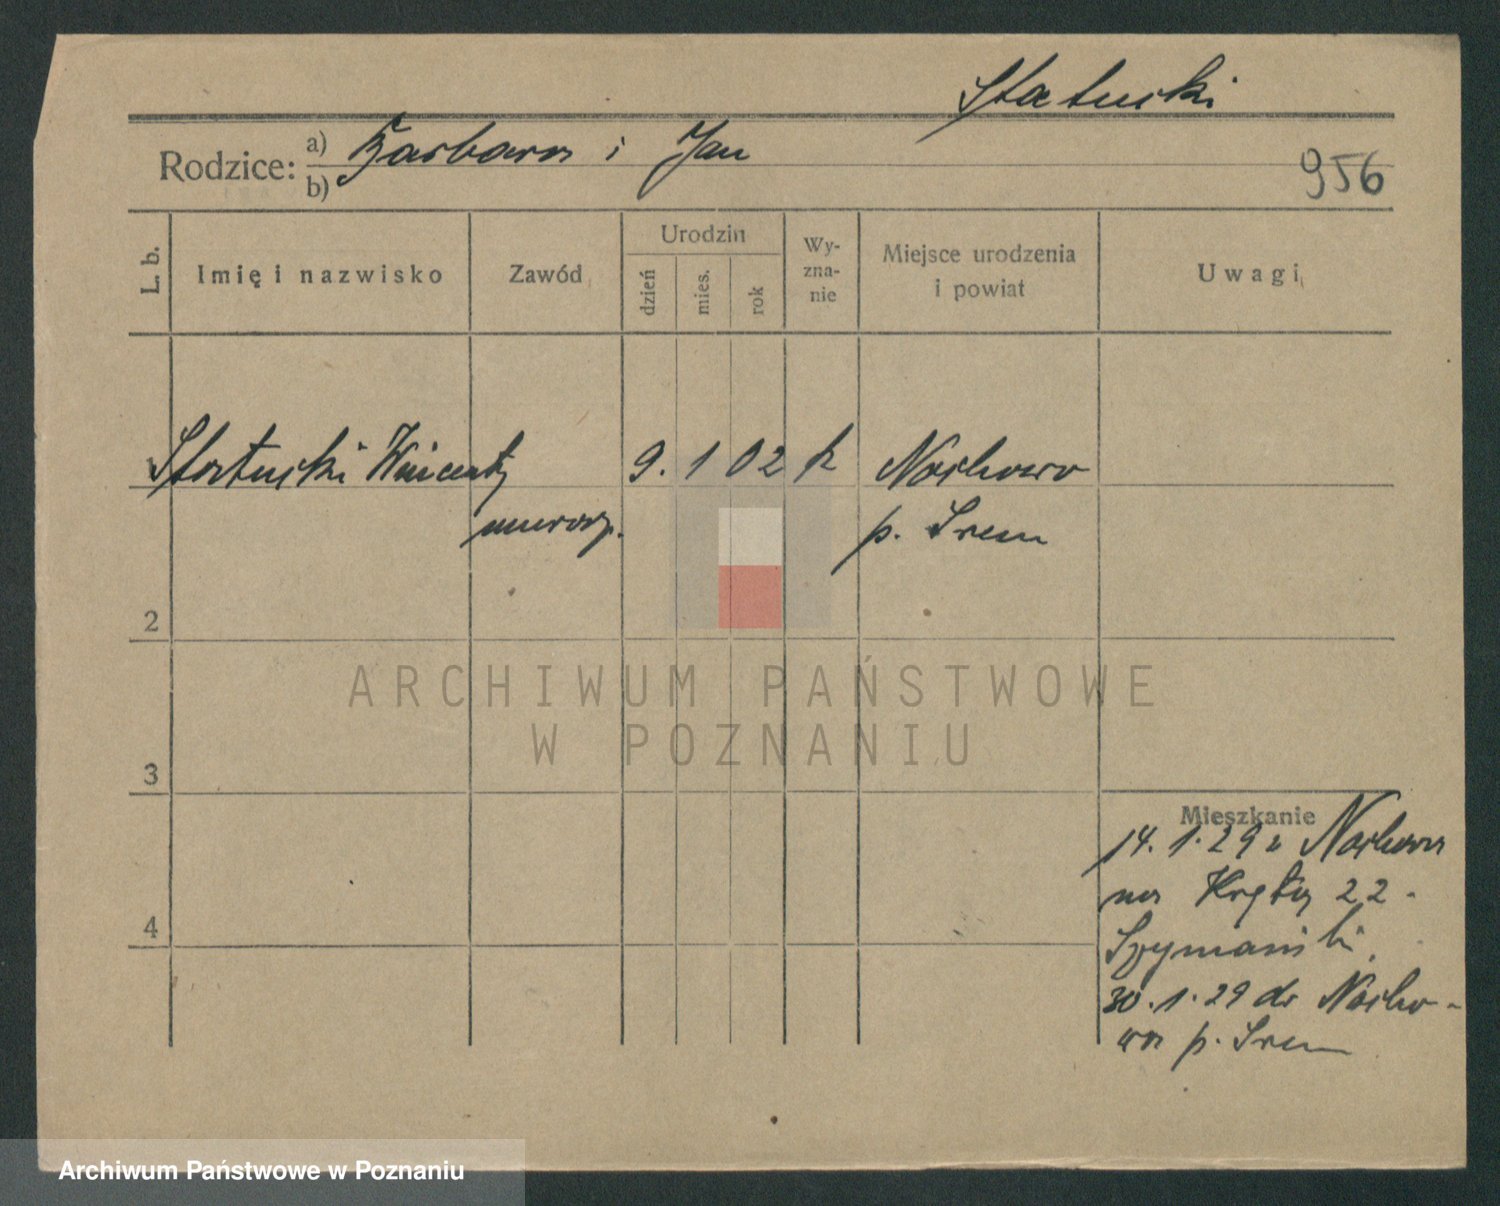 Statucki
Rodzice: a) Barbara i Jan
b)
956
L. b. Imię i nazwisko Zawód Urodzin dzień mies. rok Wy-zna-nie Miejsce urodzenia i powiat Uwagi
Statucki Wincenty 9. 1 02 k Nochowo
murarz. p. Śrem
2
3
Mieszkanie
14. 1. 29 z Nochowa
na Krętą 22.
4
Szymański.
30. 1. 29 do Nocho-
wa p. Śrem
ARCHIWUM PAŃSTWOWE
W POZNANIU
Archiwum Państwowe w Poznaniu